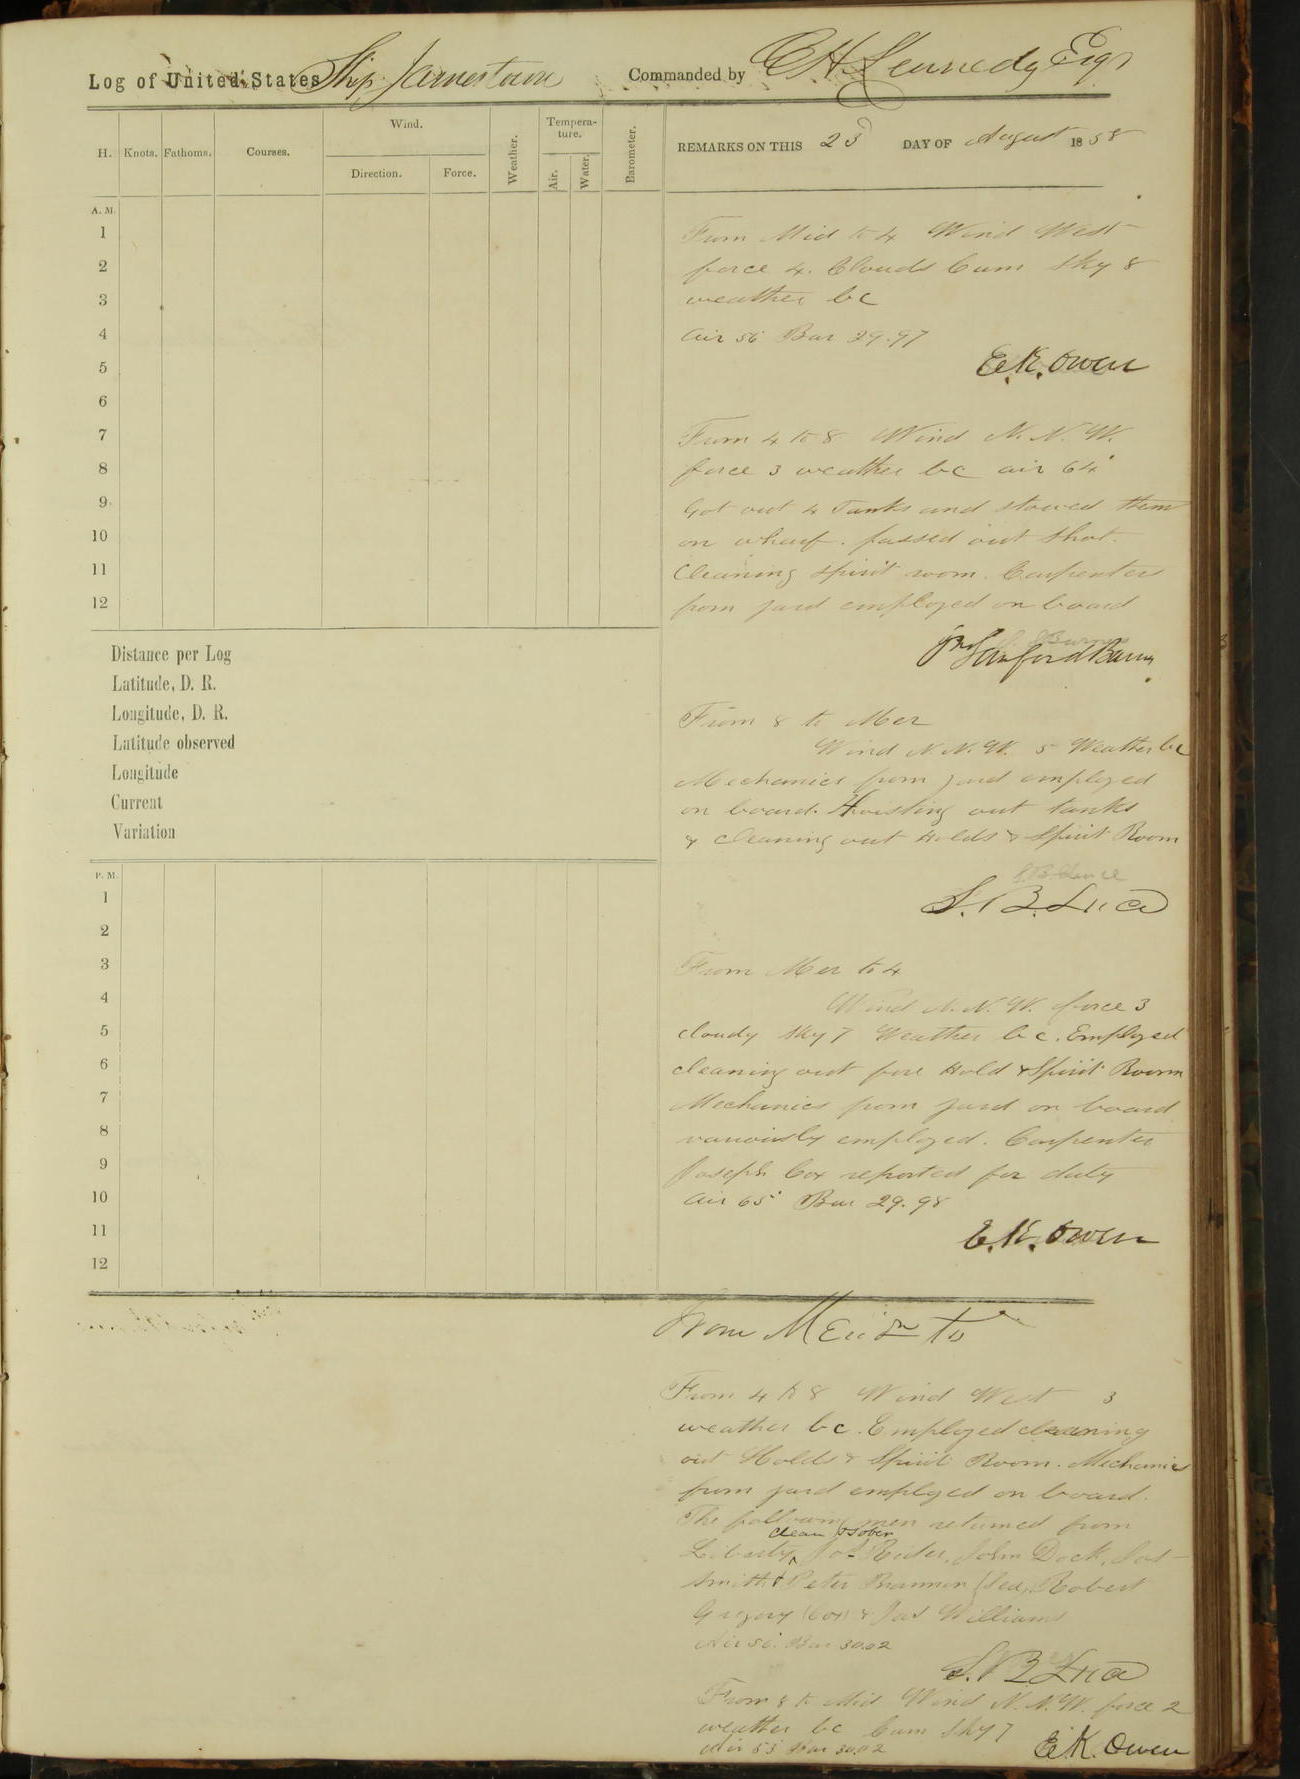 Log of United States Ship Jamestown Commanded by C H Kennedy Esqr
H. Knots. Fathoms. Courses. Wind. Direction. Force. Weather. Tempera-ture. Air. Water. Barometer.
REMARKS ON THIS 23d DAY OF August 1858
A. M.
1
2
3
4
5
6
7
8
9
10
11
12
From Mid to 4 Wind West
force 4. Clouds Cum Sky 8
weather bc
Air 56 Bar 29.97
E.K. Owen
From 4 to 8 Wind N.N.W.
force 3 weather bc air 64°
Got out 4 Tanks and stowed them
on wharf. passed out Shot.
Cleaning Spirit room. Carpenters
from yard employed on board
Distance per Log
Latitude, D. R.
Longitude, D. R.
Latitude observed
Longitude
Current
Variation
From 8 to Mer
Wind N.N.W. 5 Weather bc
Mechanics from yard employed
on board. Hoisting out tanks
& cleaning out Holds & Spirit Room
S. B. Luce
S. B. Luce
P. M.
1
2
3
4
5
6
7
8
9
10
11
12
From Mer to 4
Wind N.N.W. force 3
cloudy Sky 7 Weather bc. Employed
cleaning out fore Hold & Spirit Room
Mechanics from yard on board
variously employed. Carpenter
Joseph Cox reported for duty
Air 65° Bar 29.98
E. K. Owen
From Merdn to
From 4 to 8 Wind West 3
weather bc. Employed cleaning
out Holds & Spirit Room. Mechanics
from yard employed on board.
The following men returned from
clean & Sober
Liberty, Jos Rider, John Dock, Jas
Smith & Peter Brannon (Sea, Robert
Gregory (Cox) & Jas Williams
Air 56° Bar 30.02
S. B. Luce
From 8 to Mid Wind N.N.W. force 2
weather bc Cum Sky 7
Air 55 Bar 30.02
E. K. Owen